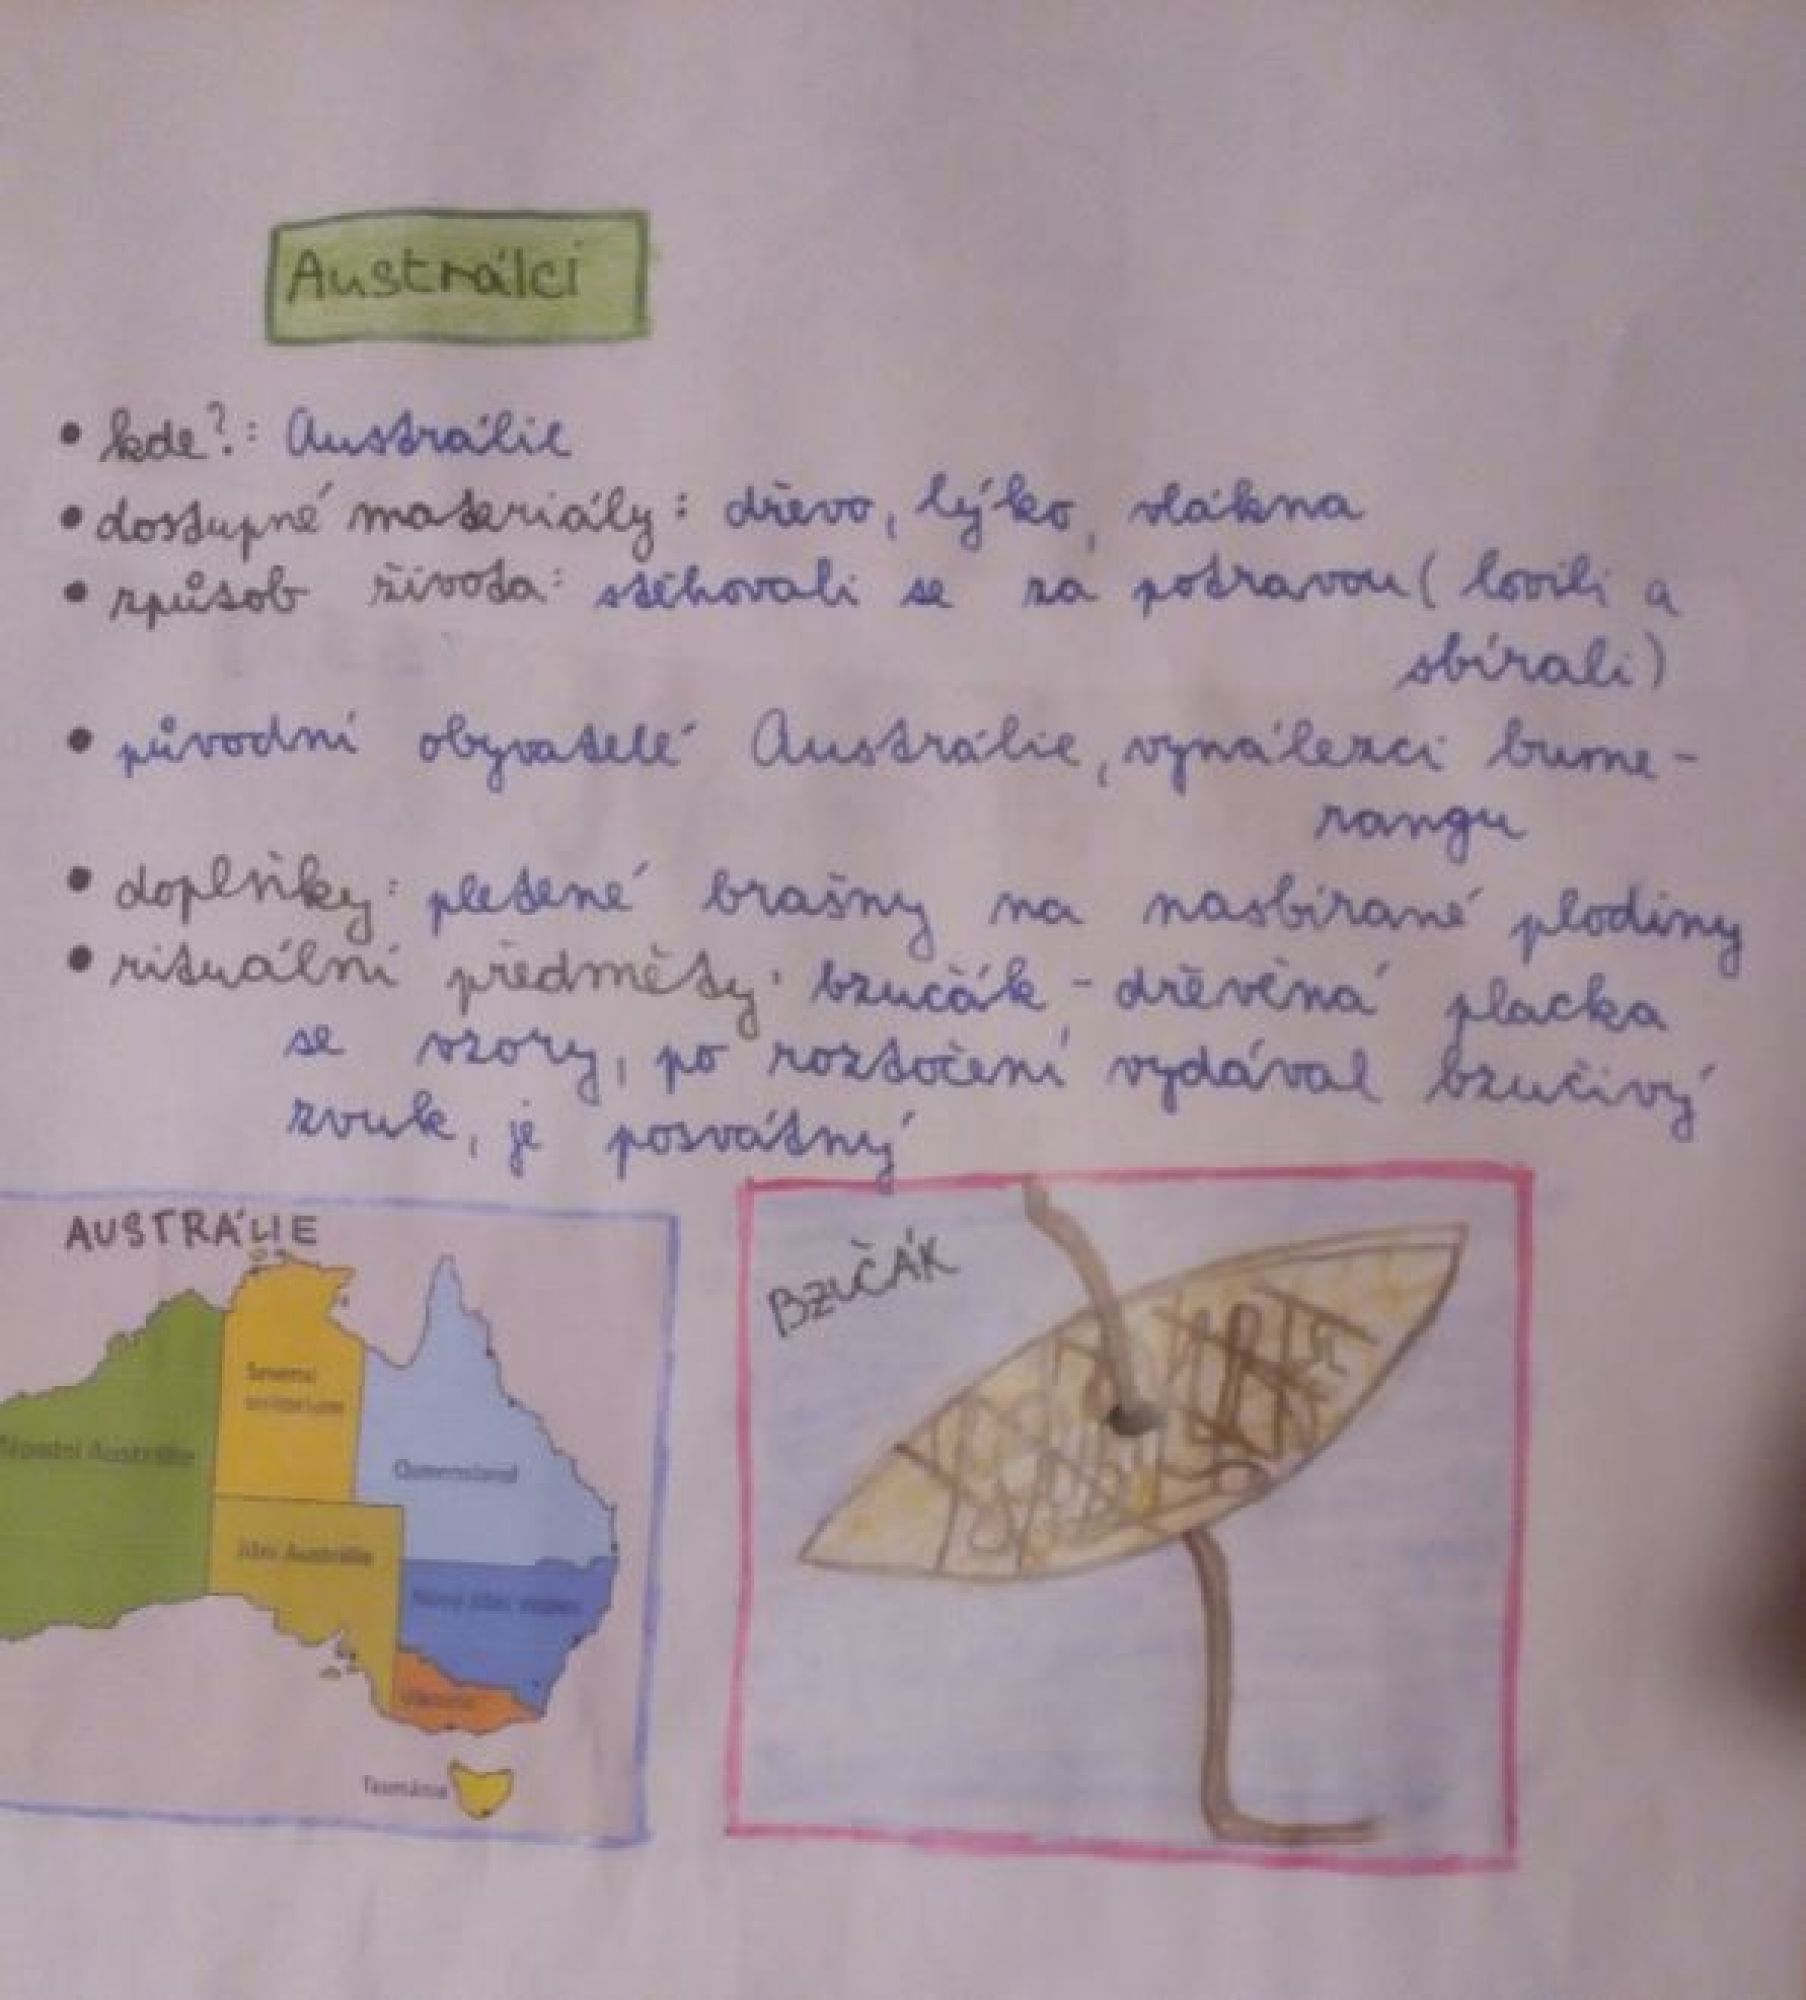 Austrálci
• kde?: Austrálie
• dostupné materiály: dřevo, lýko, vlákna
• způsob života: stěhovali se za potravou (lovili a
sbírali)
• původní obyvatelé Austrálie, vynálezci bume-
rangu
• doplňky: pletené brašny na nasbírané plodiny
• rituální předměty: bzučák - dřevěná placka
se vzory, po roztočení vydával bzučivý
zvuk, je posvátný
AUSTRÁLIE
Severní
teritorium
Západní Austrálie
Queensland
Jižní Austrálie
Nový Jižní Wales
Viktorie
Tasmánie
BZUČÁK